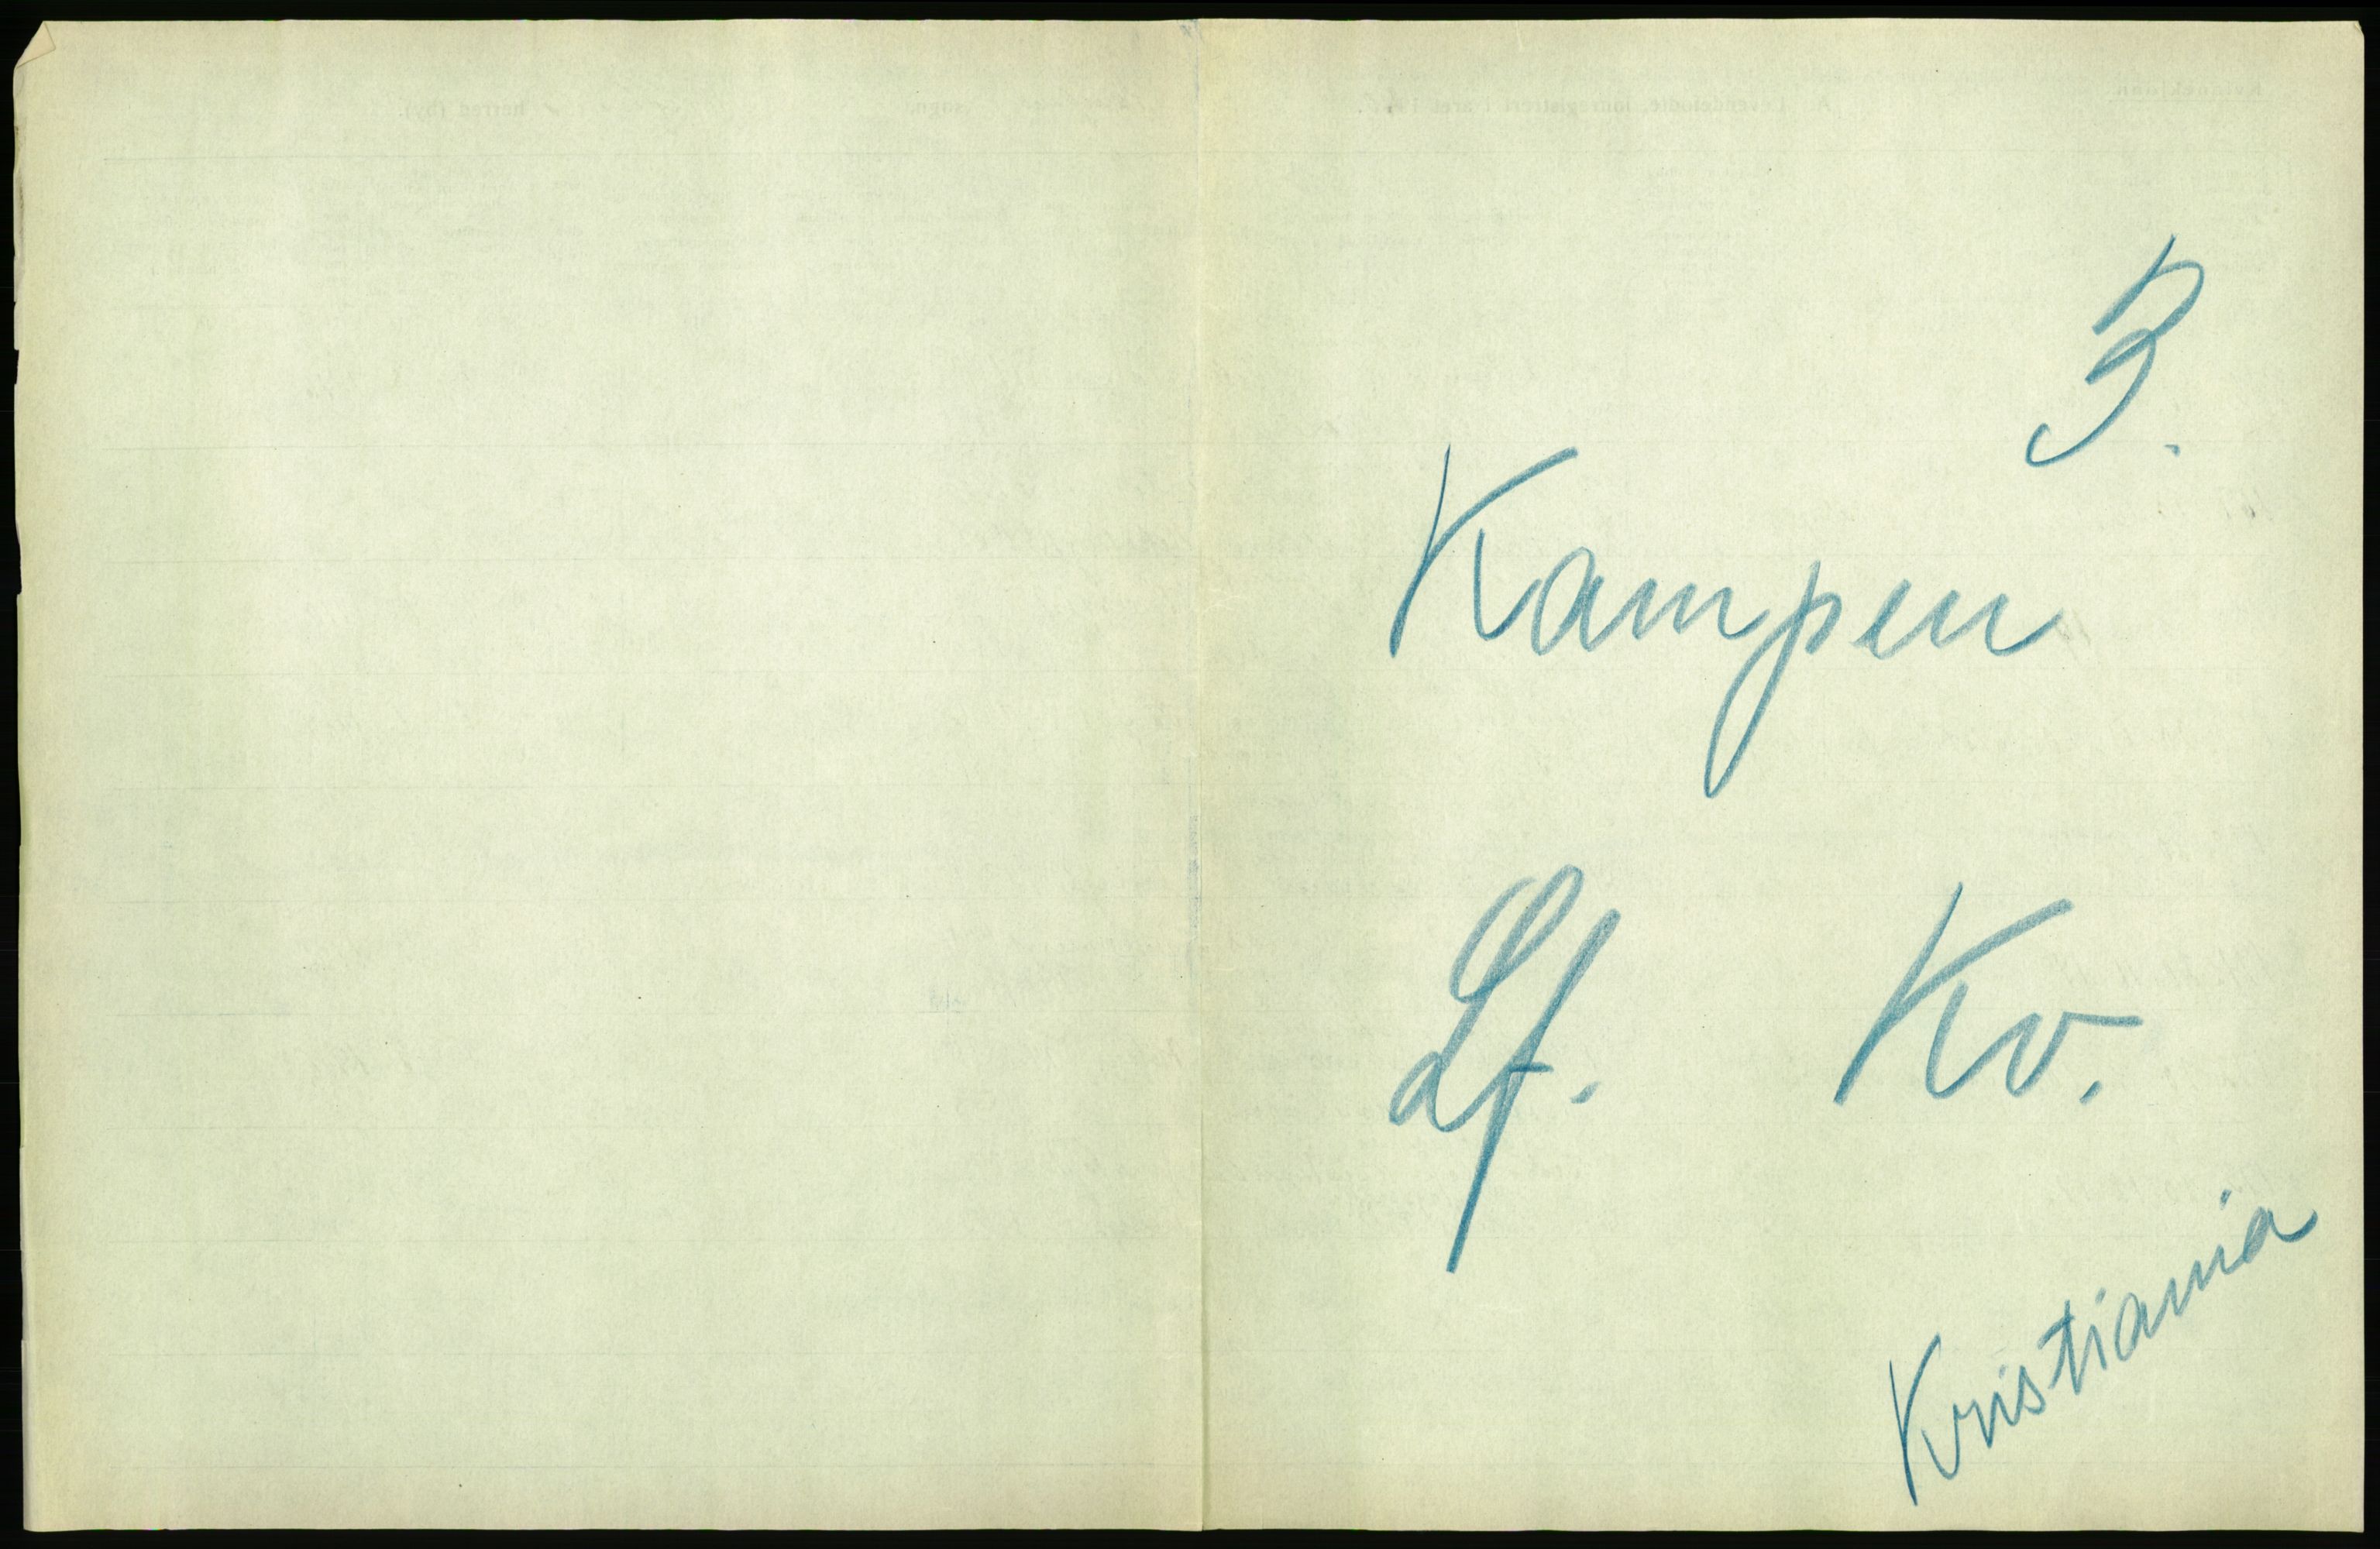 3.
Kampen
Lf. Kv.
Kristiania